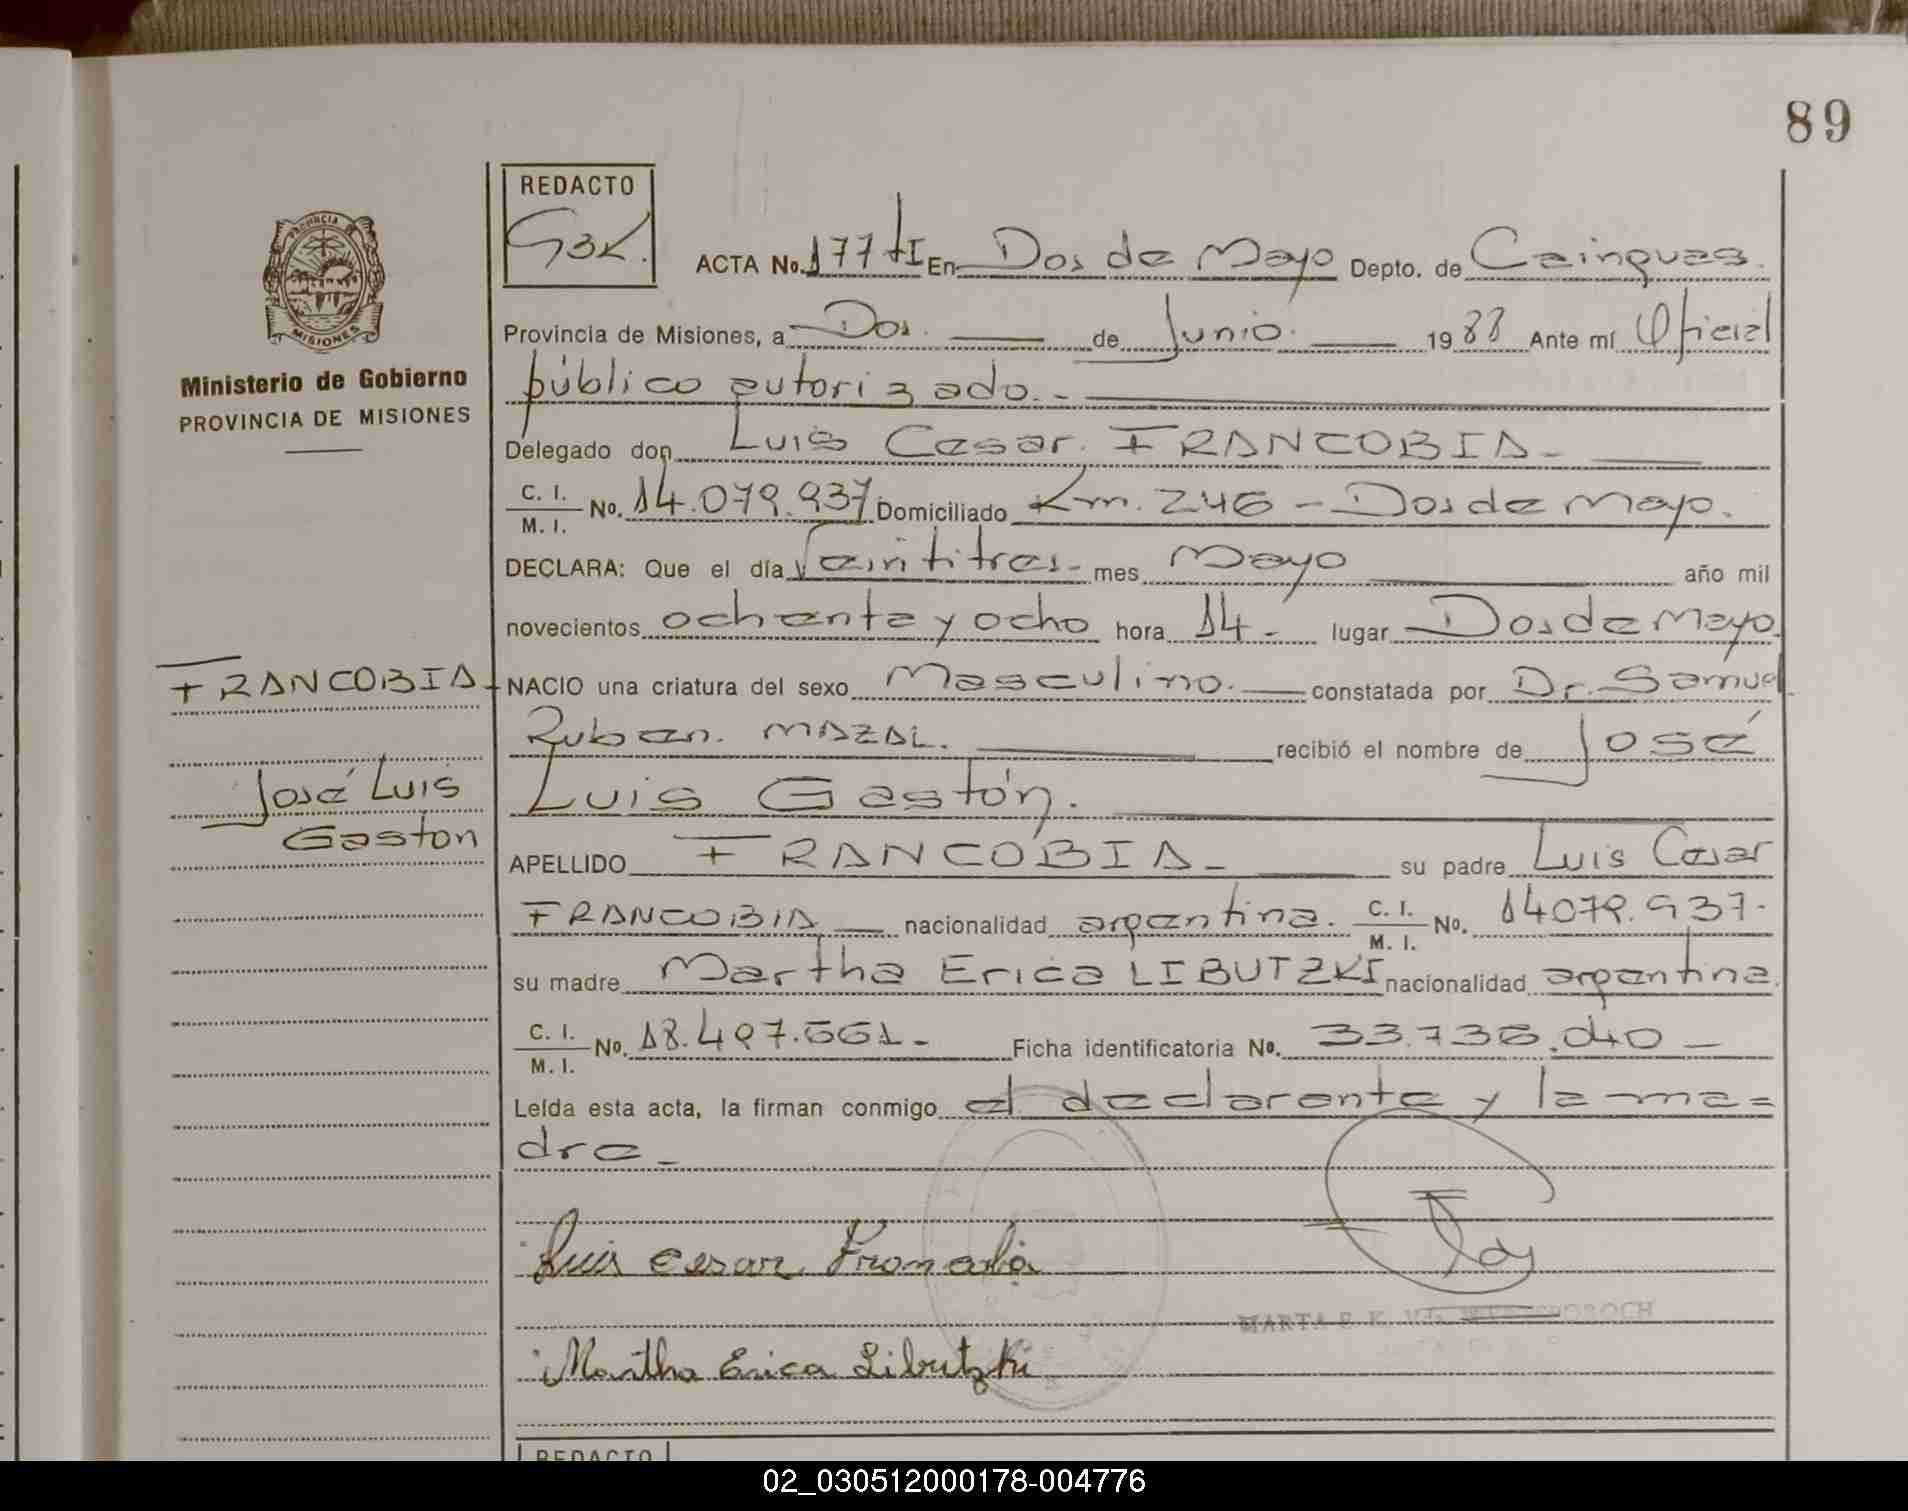 89
REDACTO
G3K.
ACTA No. 177 tI En Dos de Mayo Depto. de Cainguas.
PROVINCIA
MISIONES
Provincia de Misiones, a Dos. de Junio. 1988 Ante mí Oficial
Ministerio de Gobierno
PROVINCIA DE MISIONES
público autorizado.-
Delegado don Luis Cesar. FRANCOBIA-
C. I.
M. I.
No. 14.079.937 Domiciliado Km. 246 - Dos de Mayo.
DECLARA: Que el día Veintitres- mes Mayo año mil
novecientos ochenta y ocho hora 14- lugar Dos de Mayo.
FRANCOBIA
NACIO una criatura del sexo Masculino. constatada por Dr. Samuel
Ruben. MAZAL. recibió el nombre de José
José Luis
Gaston
Luis Gastón.
APELLIDO FRANCOBIA- su padre Luis Cesar
FRANCOBIA nacionalidad argentina. C. I.
M. I.
No. 14079.937-
su madre Martha Erica LIBUTZKI nacionalidad argentina.
C. I.
M. I.
No. 18.497.561- Ficha identificatoria No. 33.736.040-
Leída esta acta, la firman conmigo el declarante y la ma=
dre-
Luis Cesar Francobia
MARTA E. K.
Martha Erica Libutzki
REDACTO
02_030512000178-004776